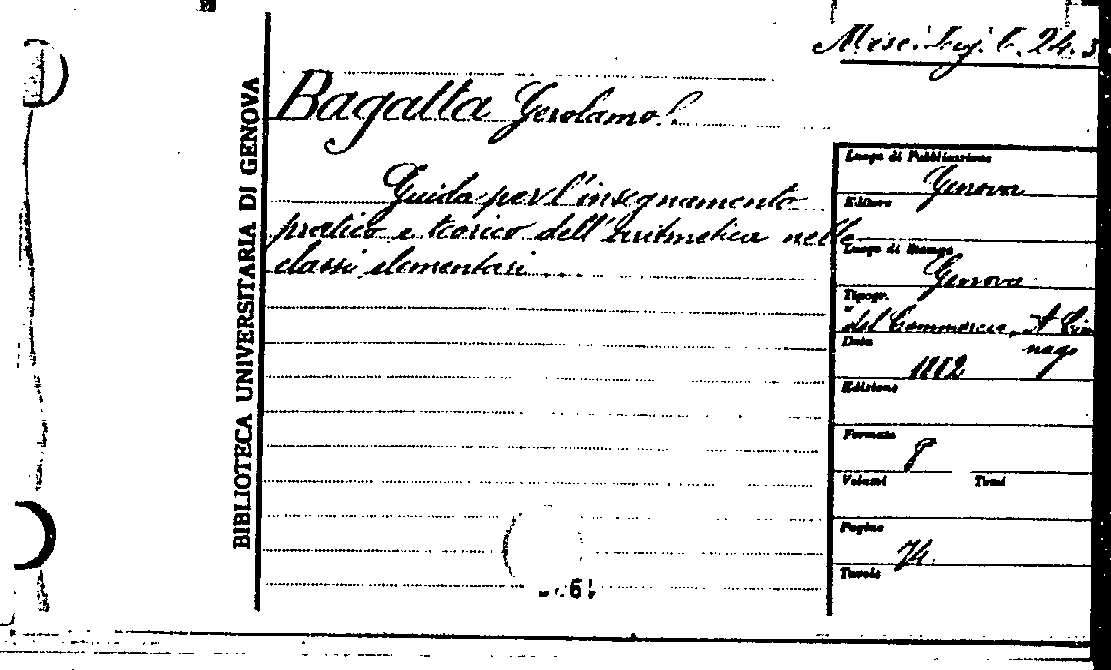 Misc. Leg. C. 24. 3
Bagatta Gerolamo.
Guida per l'insegnamento
pratico e teorico dell'aritmetica nelle
classi elementari
BIBLIOTECA UNIVERSITARIA DI GENOVA
Luogo di Pubblicazione
Genova
Editore
Luogo di Stampa
Genova
Tipogr.
del Commercio, A Cim
nago
Data
Edizione
Formato
8
Volumi Tomi
Pagine
74
Tavole